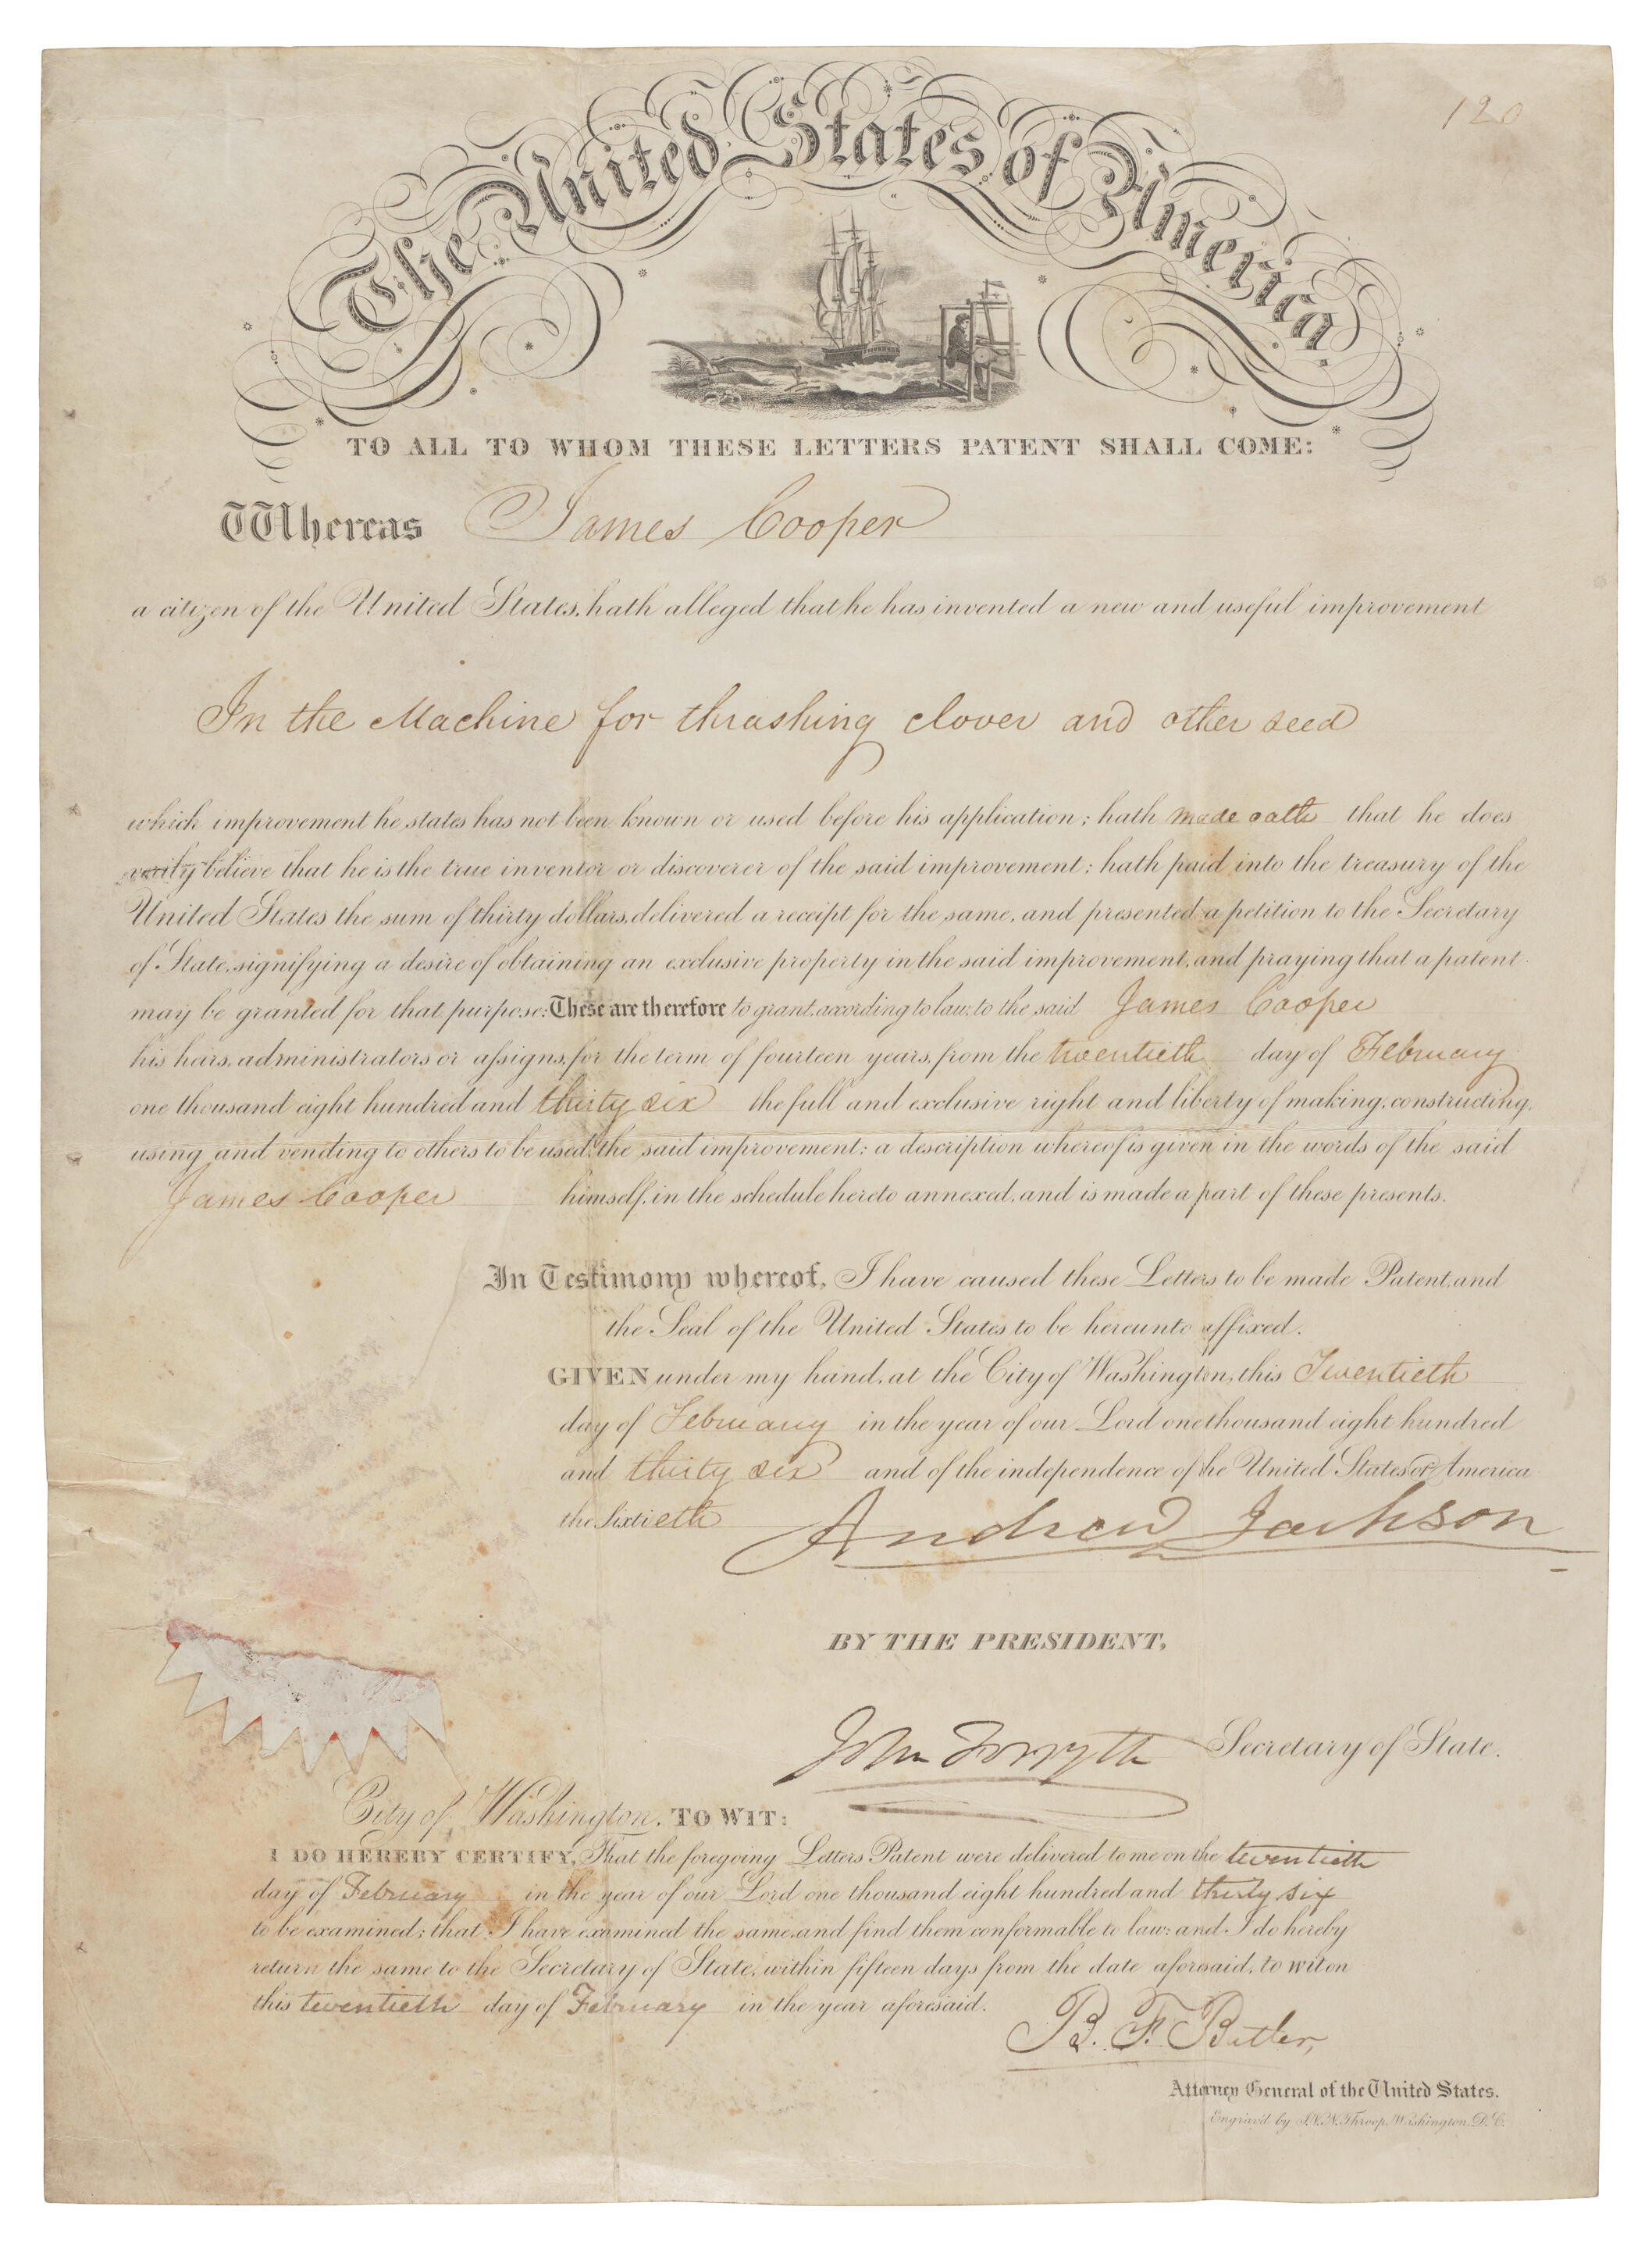 120
The United States of America
TO ALL TO WHOM THESE LETTERS PATENT SHALL COME:
Whereas James Cooper
a citizen of the United States, hath alleged that he has invented a new and useful improvement
In the Machine for thrashing clover and other seed
which improvement he states has not been known or used before his application; hath made oath that he does
verily believe that he is the true inventor or discoverer of the said improvement; hath paid into the treasury of the
United States the sum of thirty dollars, delivered a receipt for the same, and presented a petition to the Secretary
of State, signifying a desire of obtaining an exclusive property in the said improvement, and praying that a patent
may be granted for that purpose: These are therefore to grant, according to law, to the said James Cooper
his heirs, administrators or assigns, for the term of fourteen years, from the twentieth day of February
one thousand eight hundred and thirty six the full and exclusive right and liberty of making, constructing,
using and vending to others to be used, the said improvement; a description whereof is given in the words of the said
James Cooper himself, in the schedule hereto annexed, and is made a part of these presents.
In Testimony whereof, I have caused these Letters to be made Patent, and
the Seal of the United States to be hereunto affixed.
GIVEN under my hand, at the City of Washington, this Twentieth
day of February in the year of our Lord one thousand eight hundred
and thirty six and of the independence of the United States of America
the Sixtieth
Andrew Jackson
BY THE PRESIDENT,
John Forsyth Secretary of State.
City of Washington, TO WIT:
I DO HEREBY CERTIFY, That the foregoing Letters Patent were delivered to me on the twentieth
day of February in the year of our Lord one thousand eight hundred and thirty six
to be examined; that I have examined the same, and find them conformable to law; and I do hereby
return the same to the Secretary of State, within fifteen days from the date aforesaid, to wit on
this twentieth day of February in the year aforesaid.
B. F. Butler,
Attorney General of the United States.
Engraved by Throop, Washington, D.C.